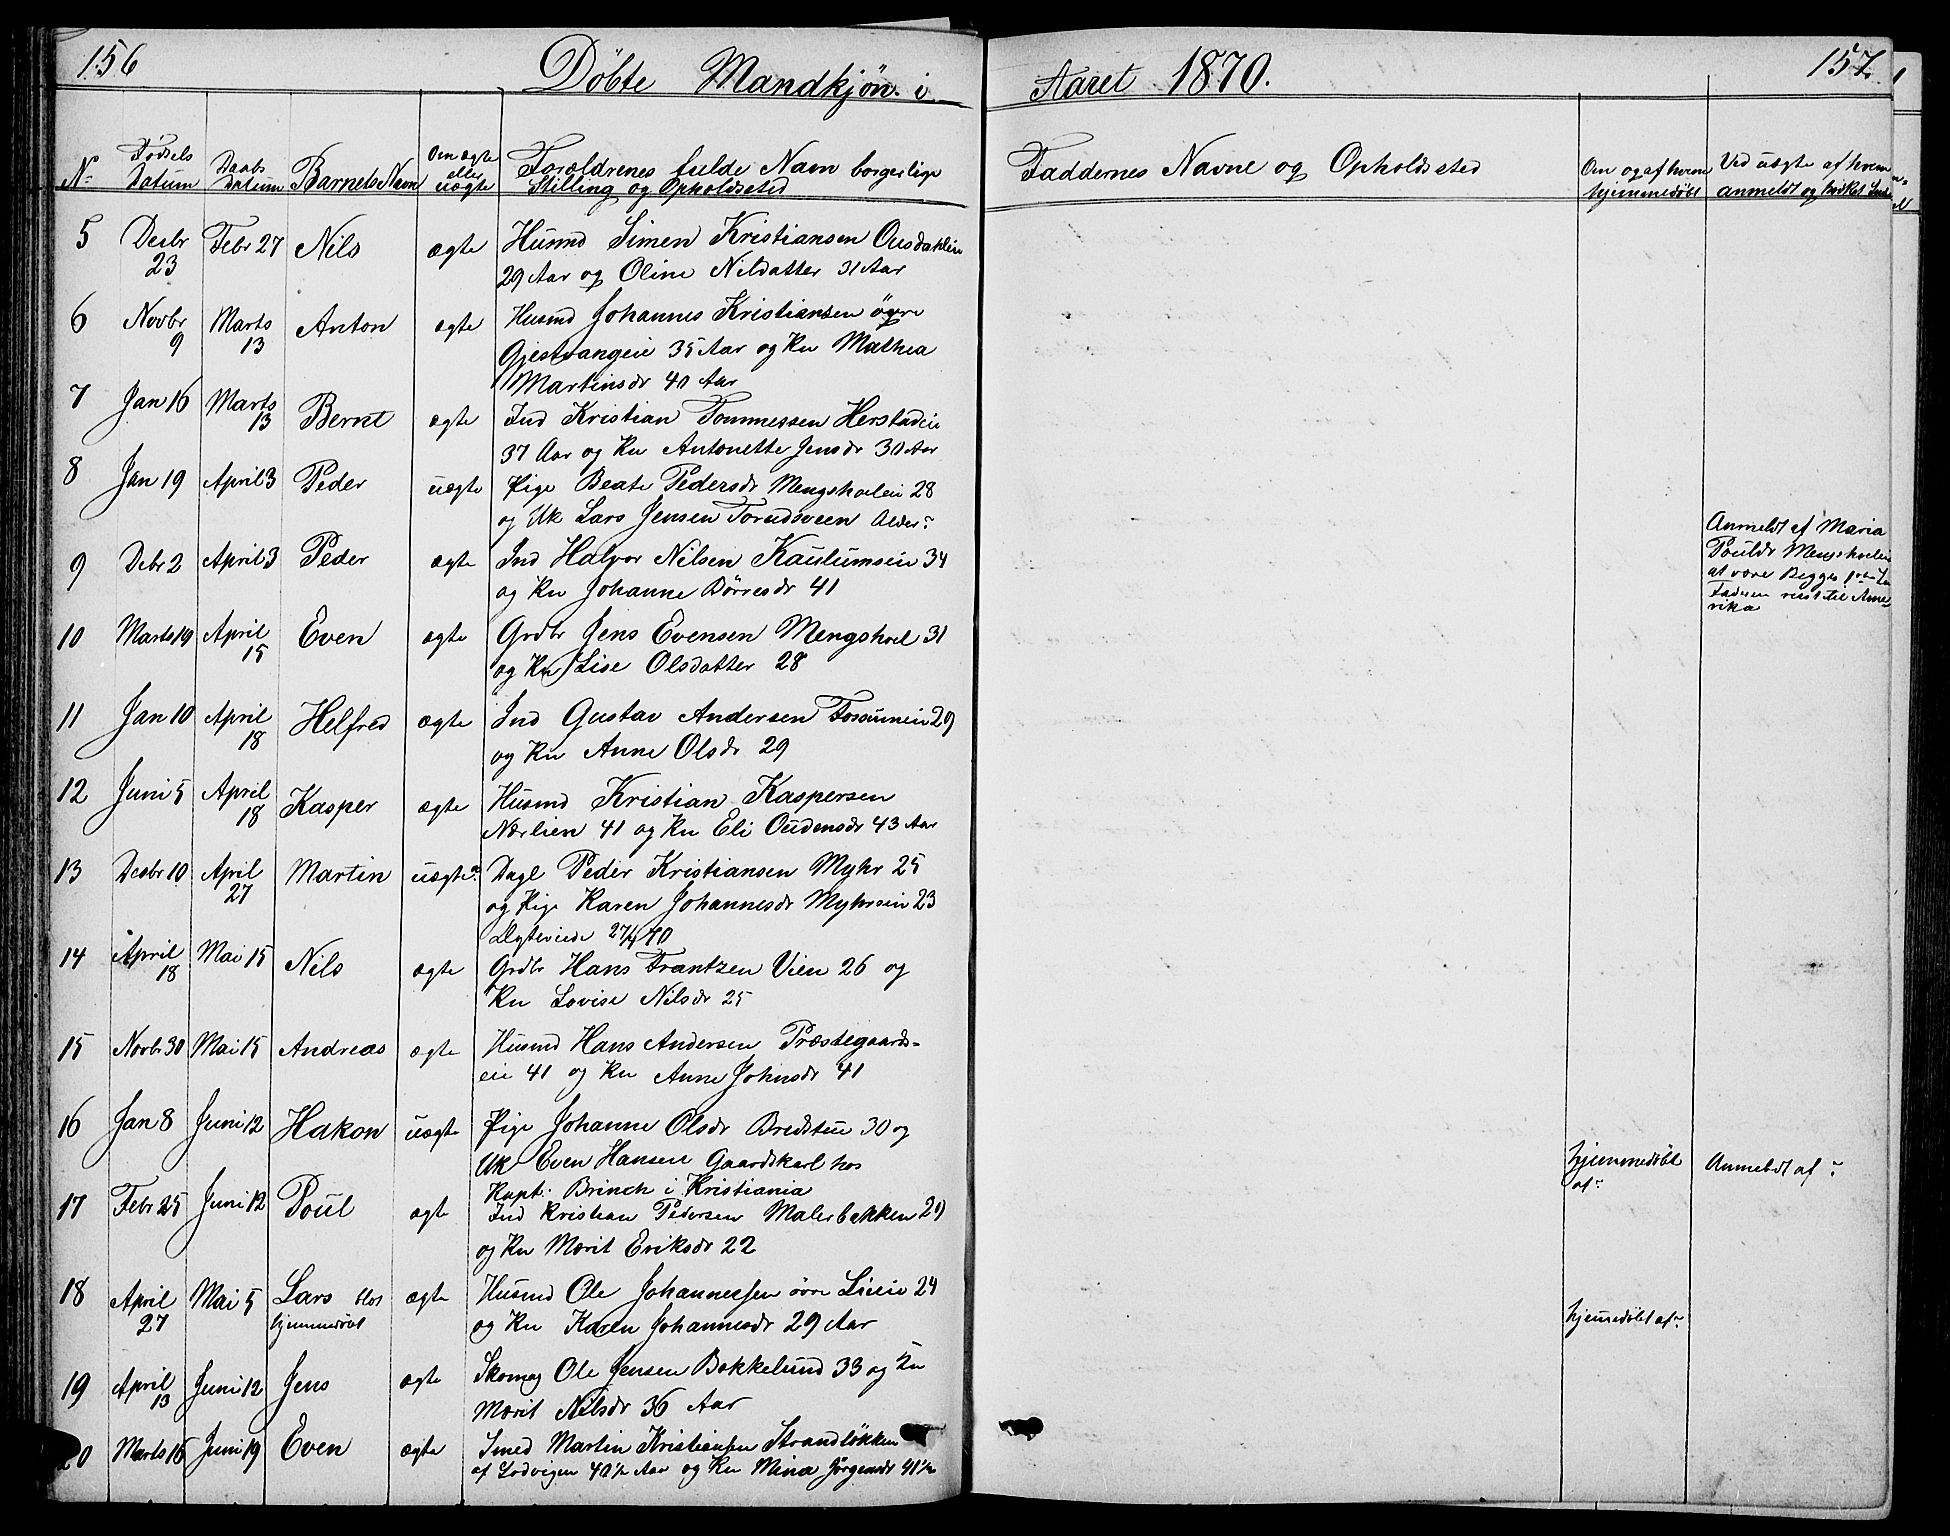 156
Döbte Mandkjön i
N:
Födsels Datum
Daabs Datum
Barnets Navn
Om ægte eller uægte
Forældrenes fulde Navn borgerlige
Stilling og Opholdssted
5 Desbr 23 Febr 27 Nils ægte Husmd Simen Kristiansen Ousdahleie
29 Aar og Oline Nilsdatter 31 Aar
6 Novbr 9 Marts 13 Anton ægte Husmd Johannes Kristiansen övre
Gjestvangeie 35 Aar og Ku Mathea
Martinsdr 40 Aar
7 Jan 16 Marts 13 Bernt ægte Ind Kristian Tommessen Herstadeie
37 Aar og Ku Antonette Jensdr 30 Aar
8 Jan 19 April 3 Peder uægte Pige Beate Pedersdr Mengsholeie 28
og Uk Lars Jensen Torudsveen Alder?
9 Debr 2 April 3 Peder ægte Ind Halvor Nilsen Kaulumseie 34
og Ku Johanne Börresdr 41
10 Marts 19 April 15 Even ægte Grdbr Jens Evensen Mengshoel 31
og Ku Lise Olsdatter 28
11 Jan 10 April 18 Helfred ægte Ind Gustav Andersen Fossumeie 29
og Ku Anne Olsdr 29
12 Juni 5 April 18 Kasper ægte Husmd Kristian Kaspersen
Nærlien 41 og Ku Eli Oudensdr 43 Aar
13 Desbr 10 April 27 Martin uægte? Dagl Peder Kristiansen Myhr 25
og Pige Karen Johannesdr Myhrseie 23
Ægteviede 27/4 70
14 April 18 Mai 15 Nils ægte Grdbr Hans Frantzen Vien 26 og
Ku Lovise Nilsdr 25
15 Novbr 30 Mai 15 Andreas ægte Husmd Hans Andersen Præstegaards-
eie 41 og Ku Anne Johnsdr 41
16 Jan 8 Juni 12 Hakon uægte Pige Johanne Olsdr Bredstue 30 og
Uk Even Hansen Gaardskarl hos
Kapt: Brinch i Kristiania
17 Febr 25 Juni 12 Poul ægte Ind Kristian Pedersen Malerbakken 29
og Ku Marit Eriksdr 22
18 April 27 Mai 5 Lars blot hjemmedöbt ægte Husmd Ole Johannessen övre Lieie 24
og Ku Karen Johannesdr 29 Aar
19 April 13 Juni 12 Jens ægte Skomag Ole Jensen Bakkelund 33 og Ku
Marit Nilsdr 36 Aar
20 Marts 16 Juni 19 Even ægte Smed Martin Kristiansen Strandlökken
af Lodvigen 40½ Aar og Ku Mina Jörgensdr 41½
Aaret 1870.
157
Faddernes Navne og Opholdssted
Om og af hvem
hjemmedöbt
Ved uægte af hvem
anmeldt og hvilket
Anmeldt af Maria
Pouldr Mengshoeleie
at være Begges 1ste
Faderen reist til Ame-
rika
hjemmedöbt
af?
Anmeldt af ?
hjemedöbt af?